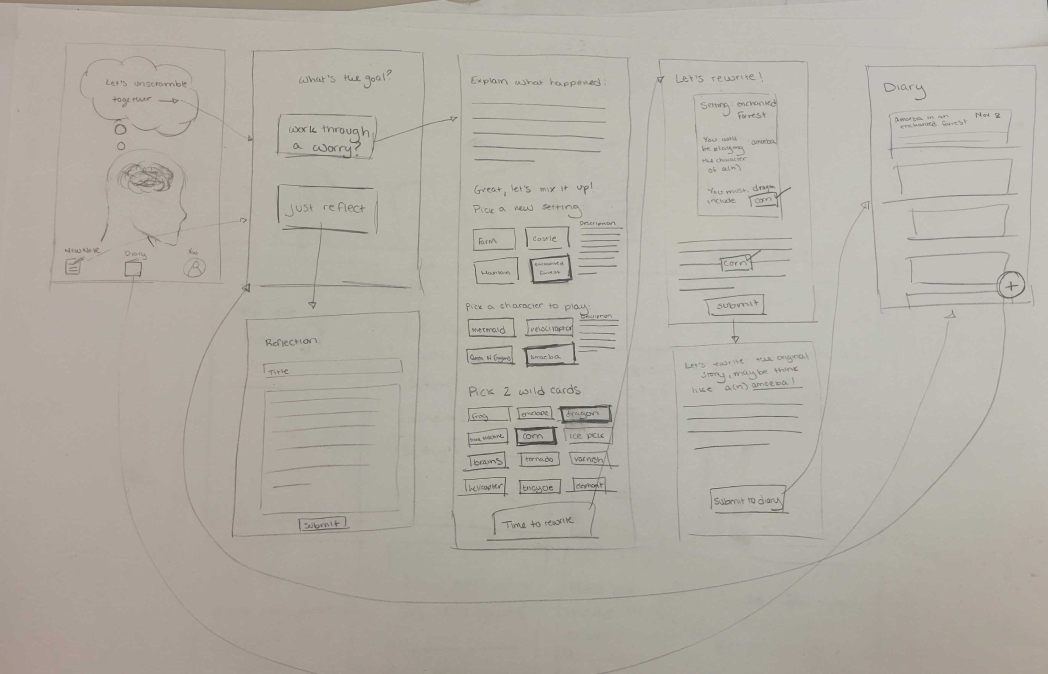 Let's unscramble
together
New Note
Diary
You
What's the goal?
Work through
a worry?
Just reflect
Reflection
Title
Submit
Explain what happened:
Great, let's mix it up!
Pick a new setting
Farm
Castle
Mountain
enchanted
forest
Description
Pick a character to play:
mermaid
velociraptor
Amoeba
Description
Pick 2 wild cards
frog
envelope
dragon
corn
ice pick
brains
tornado
varnish
helicopter
bicycle
elephant
Time to rewrite
Let's rewrite!
Setting: enchanted
forest
You will
be playing
the character
of a(n)
amoeba
You must
include
dragon
corn
corn
Submit
Let's rewrite the original
story, maybe think
like a(n) amoeba!
Submit to diary
Diary
Amoeba in an
enchanted forest
Nov 2
+